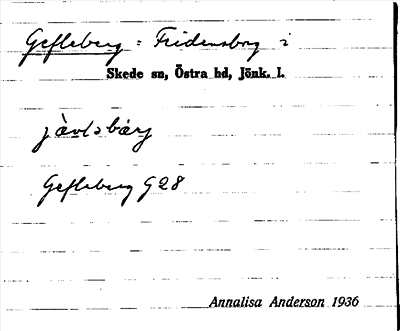 Gefleberg = Fridensborg i
Skede sn, Östra hd, Jönk. l.
jàvləbárj
Gefleberg G 28
Annalisa Anderson 1936